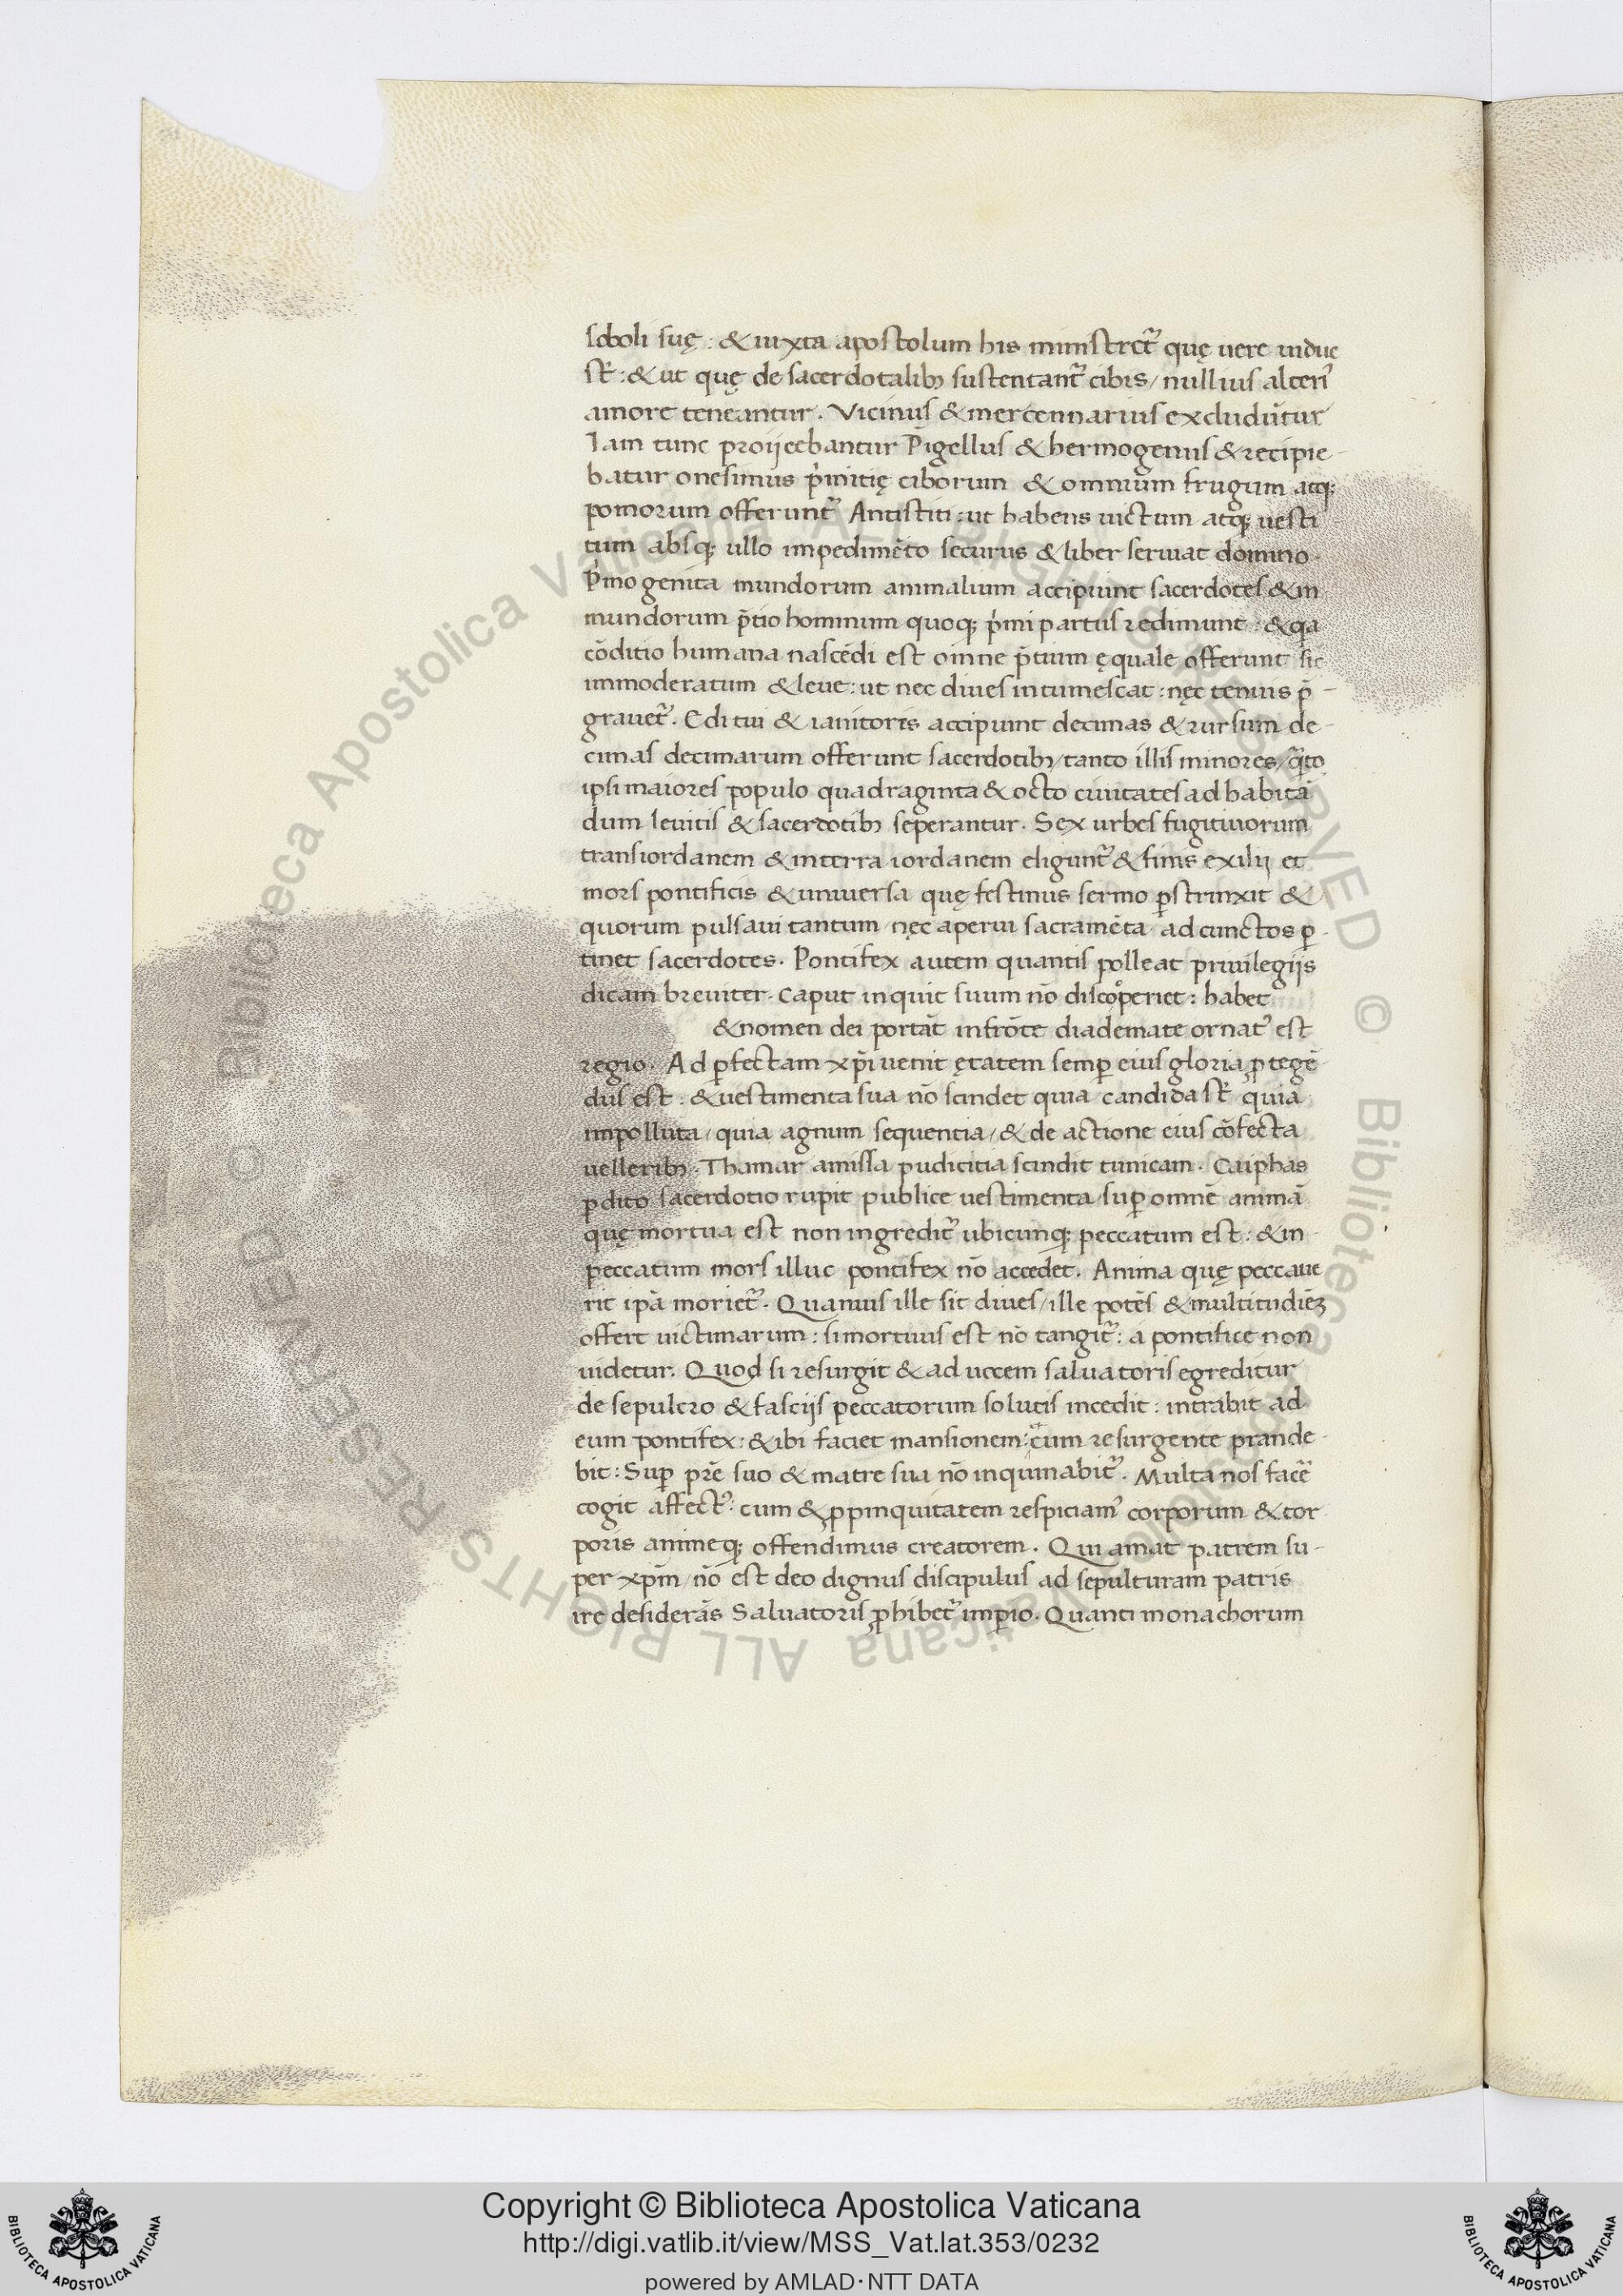 soboli suę : & iuxta apostolum his ministret᷑ quę uere uidue
st̄ : & ut quę de sacerdotalibꝫ sustentant᷑ cibis / nullius alteri᷑
amore teneantur . Vicinus & mercennarius excludūtur
Iam tunc proijcebantur Pigellus & hermogenus & recipie-
batur onesimus p̓mitię ciborum & omnium frugum atqꝫ
pomorum offerunt᷑ Antistiti : ut habens uictum atqꝫ uesti
tum absqꝫ ullo impedimēto securus & liber seruiat domino .
P̓mogenita mundorum animalium accipiunt sacerdotes & in
mundorum p̄tio hominum quoqꝫ p̓mi partus redimunt : & qa
cōditio humana nascēdi est omne p̄tium ęquale offerunt sic
immoderatum & leue : ut nec diues intumescat : nęc tenuis p̄-
grauet᷑ . Editui & ianitoris accipiunt decimas & rursum de-
cimas decimarum offerunt sacerdotibꝫ / tanto illis minores / q̄to
ipsi maiores populo quadraginta & octo ciuitates ad habitā
dum leuitis & sacerdotibꝫ seperantur . Sex urbes fugitiuorum
transiordanem & in terra iordanem eligunt᷑ & finis exilij et
mors pontificis & uniuersa quę festinus sermo ꝑstrinxit &
quorum pulsaui tantum nęc aperui sacramēta ad cunctos ꝑ-
tinet sacerdotes . Pontifex autem quantis polleat priuilegijs
dicam breuiter . Caput inquit suum nō discoperiet : habet
& nomen dei portāt in frōte diademate ornat᷒ est
regio . Ad ꝑfectam xp̄i uenit ętatem semꝑ eius gloria ꝓtegē
dus est : & uestimenta sua nō scindet quia candida st̄ quia
impolluta / quia agnum sequentia / & de actione eius cōfecta
uelleribꝫ . Thamar amissa pudicitia scindit tunicam . Caiphas
ꝑdito sacerdotio rupit publice uestimenta / suꝑ omnē animā
quę mortua est non ingredit᷑ ubicunqꝫ peccatum est : & in
peccatum mors illuc pontifex nō accedet . Anima quę peccaue
rit ip̄a moriet᷑ . Quamuis ille sit diues / ille potēs & multitudiēꝫ
offert uictimarum : si mortuus est nō tangit᷑ : a pontifice non
uidetur . Quod si resurgit & ad uocem saluatoris egreditur
de sepulcro & fascijs peccatorum solutis incedit : intrabit ad
eum pontifex : & ibi faciet mansionem : & cum resurgente prande
bit : Suꝑ pr̄e suo & matre sua nō inquinabit᷑ . Multa nos facē
cogit affect᷒ : cum & ꝓpinquitatem respiciam᷒ corporum & cor
poris animeqꝫ offendimus creatorem . Qui amat patrem su-
per xp̄m / nō est deo dignus discipulus ad sepulturam patris
ire desiderās Saluatoris ꝓhibet᷑ imꝑio . Quanti monachorum
Copyright © Biblioteca Apostolica Vaticana
http://digi.vatlib.it/view/MSS_Vat.lat.353/0232
powered by AMLAD·NTT DATA
BIBLIOTECA APOSTOLICA VATICANA
BIBLIOTECA APOSTOLICA VATICANA
© Biblioteca Apostolica Vaticana ALL RIGHTS RESERVED © Biblioteca Apostolica Vaticana ALL RIGHTS RESERVED